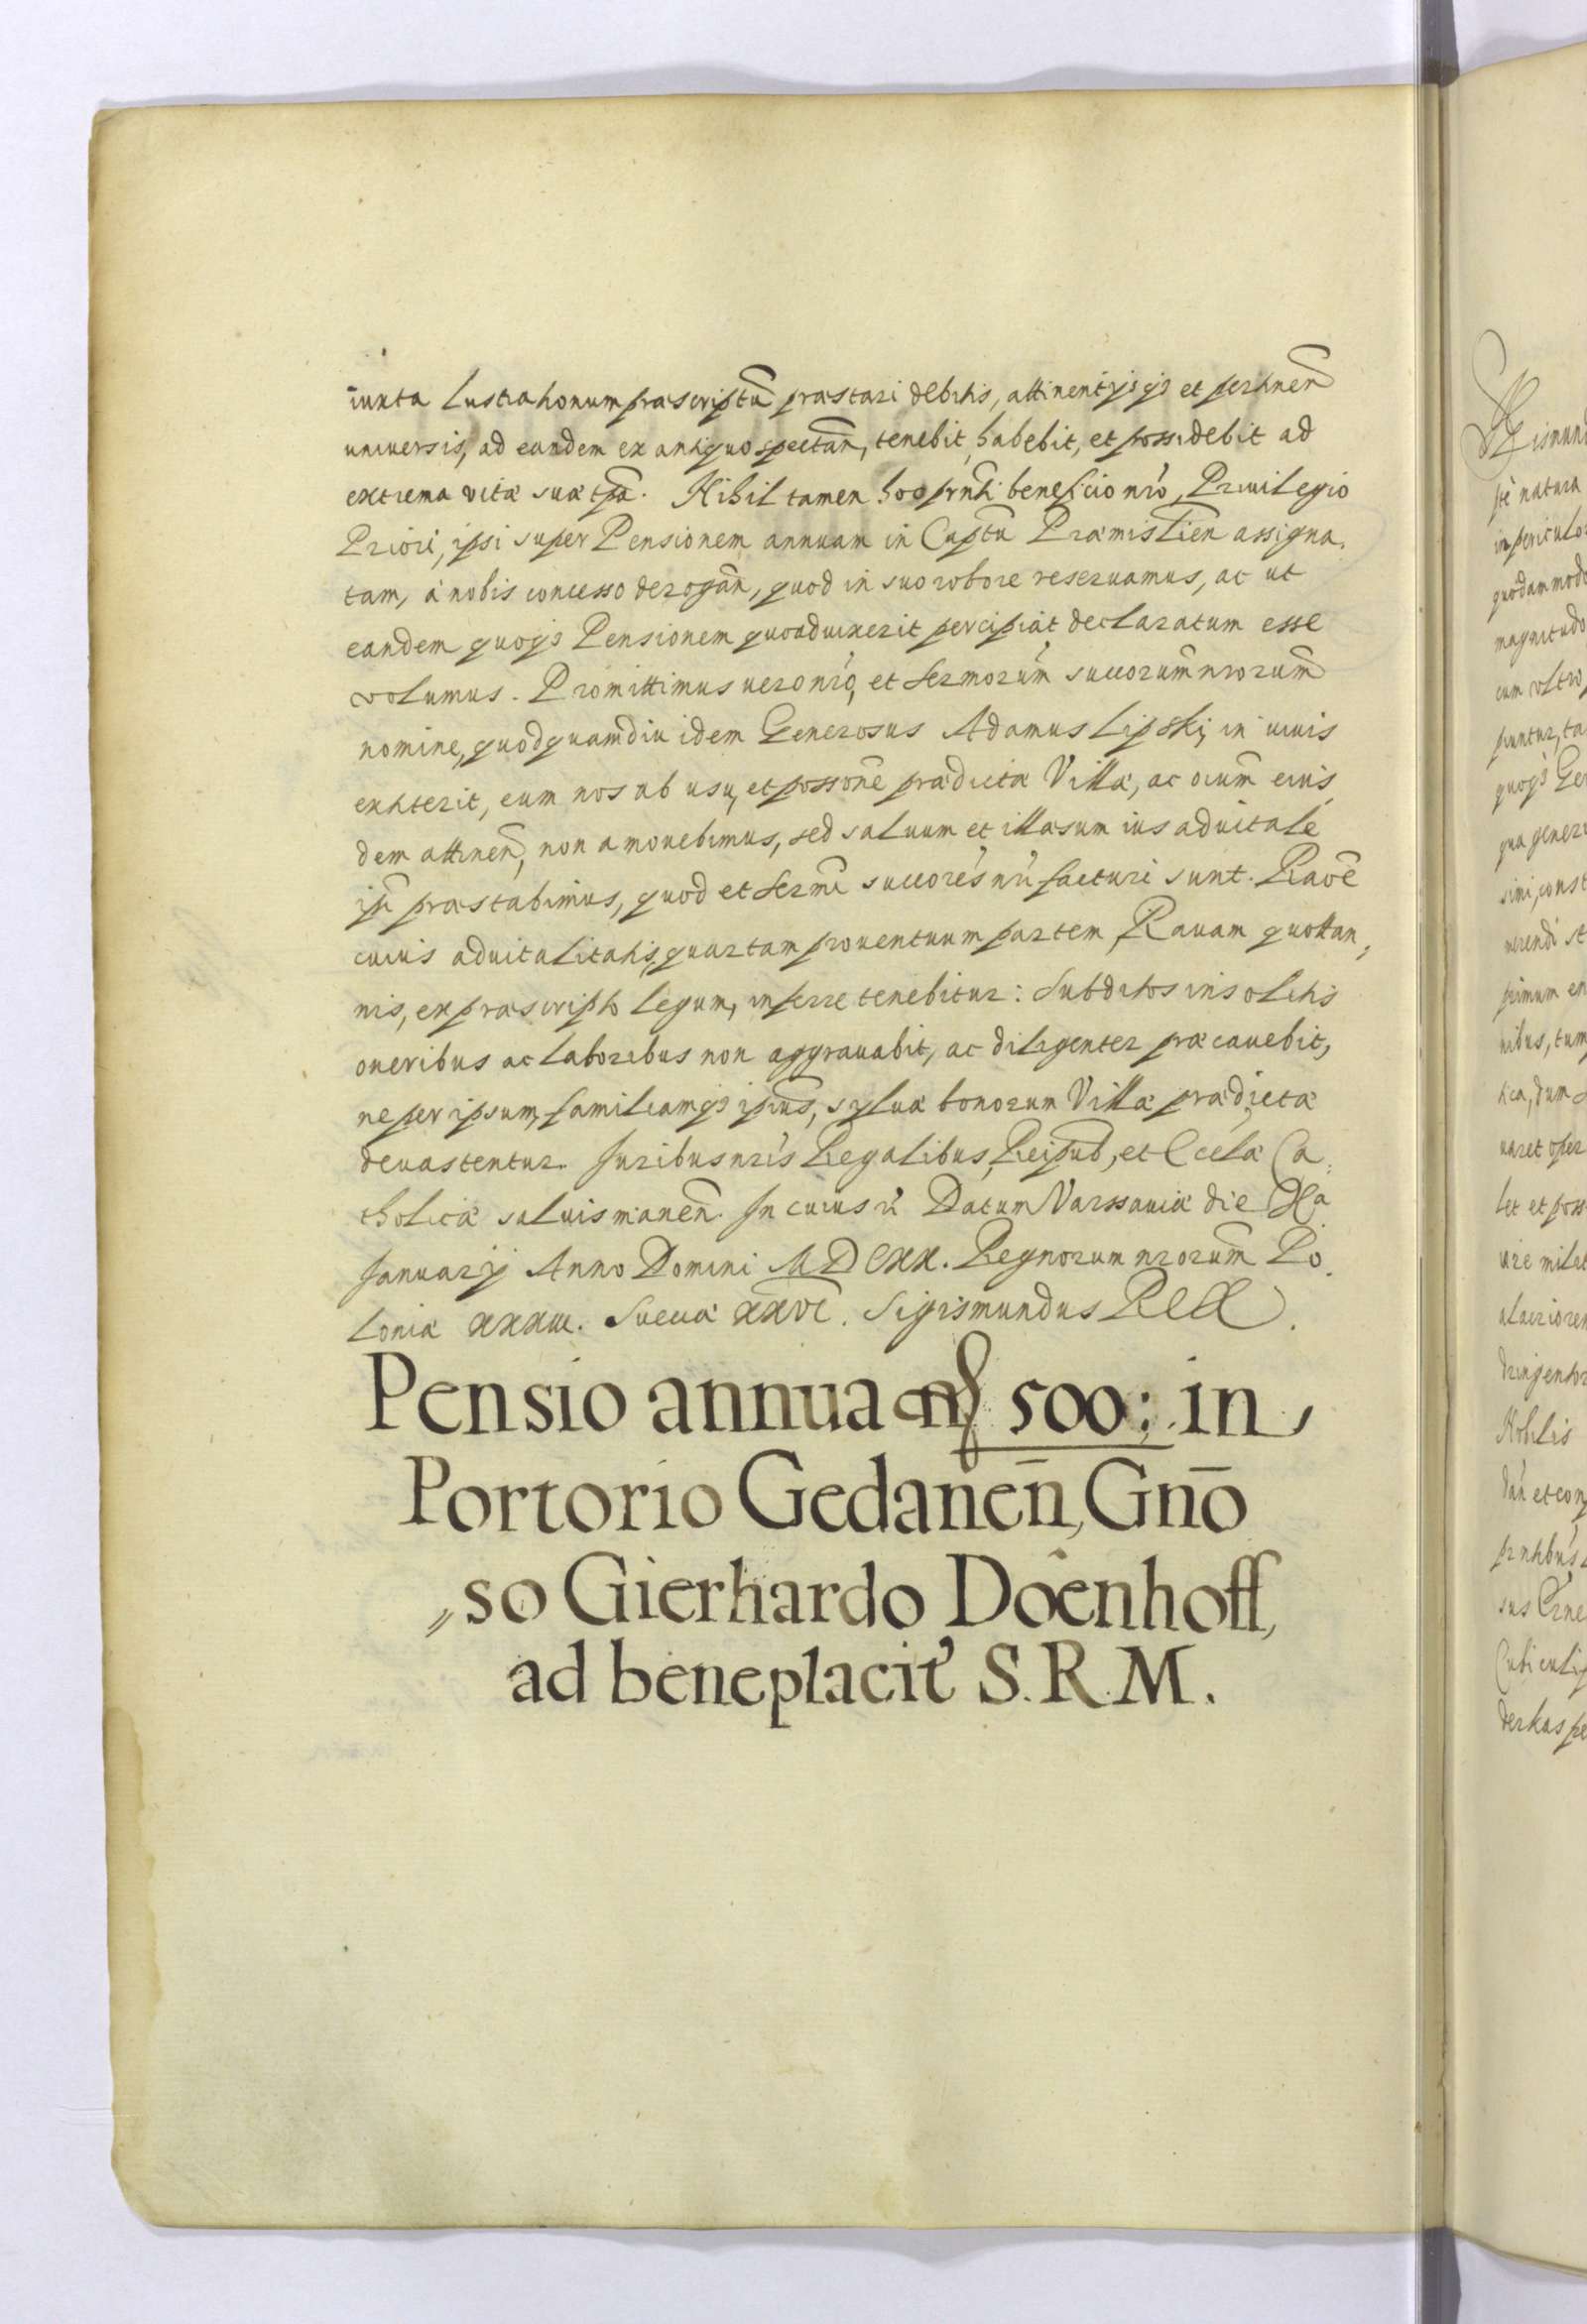 iuxta Lustrationum præscriptū præstari debitis, attinentijsqȝ et pertinen̄
uniuersis, ad eandem ex antiquo spectan̄, tenebit, habebit, et possidebit ad
extrema vitæ suæ tp̄a. Nihil tamen hoc prn̄ti beneficio nr̄o, Priuilegio
Priori, ipsi super Pensionem annuam in Capt̄u Præmislien̄ assigna,
tam, à nobis concesso derogan̄, quod in suo robore reseruamus, ac ut
eandem quoqȝ Pensionem quoaduixerit percipiat declaratum esse
volumus. Promittimus uero nr̄o, et Sermorum̄ succorum̄ nrorum̄
nomine, quod quamdiu idem Generosus Adamus Lipski, in uiuis
extiterit, eum nos ab usu, et posson̄e prædictæ Villæ, ac oium̄ eius,
dem attinen̄, non amouebimus, sed saluum et illæsum ius aduitale
ip̄i præstabimus, quod et Serm̄i succores̄ nr̄i facturi sunt. Raōe
cuius aduitalitatis, quartam prouentuum partem, Rauam quottan,
nis, ex præscripto legum, inferre tenebitur: Subditos insolitis
oneribus ac laboribus non aggrauabit, ac diligenter præcauebit,
ne per ipsum, familiamqȝ ipius̄, syluæ bonorum Villæ prædictæ
deuastentur. Juribus nr̄is Regalibus, Reipub, et Ecclæ Ca,
tholicæ saluis manen̄. In cuius r̄i Datum Varssauiæ die IXa
Januarij Anno Domini MDCXX. Regnorum nrorum̄ Po,
loniæ XXXIII. Sueciæ XXVI. Sigismundus REX.
Pensio annua 500: in
Portorio Gedanen̄, Gnō
so Gierhardo Doenhoff,
ad beneplacit' S. R. M.